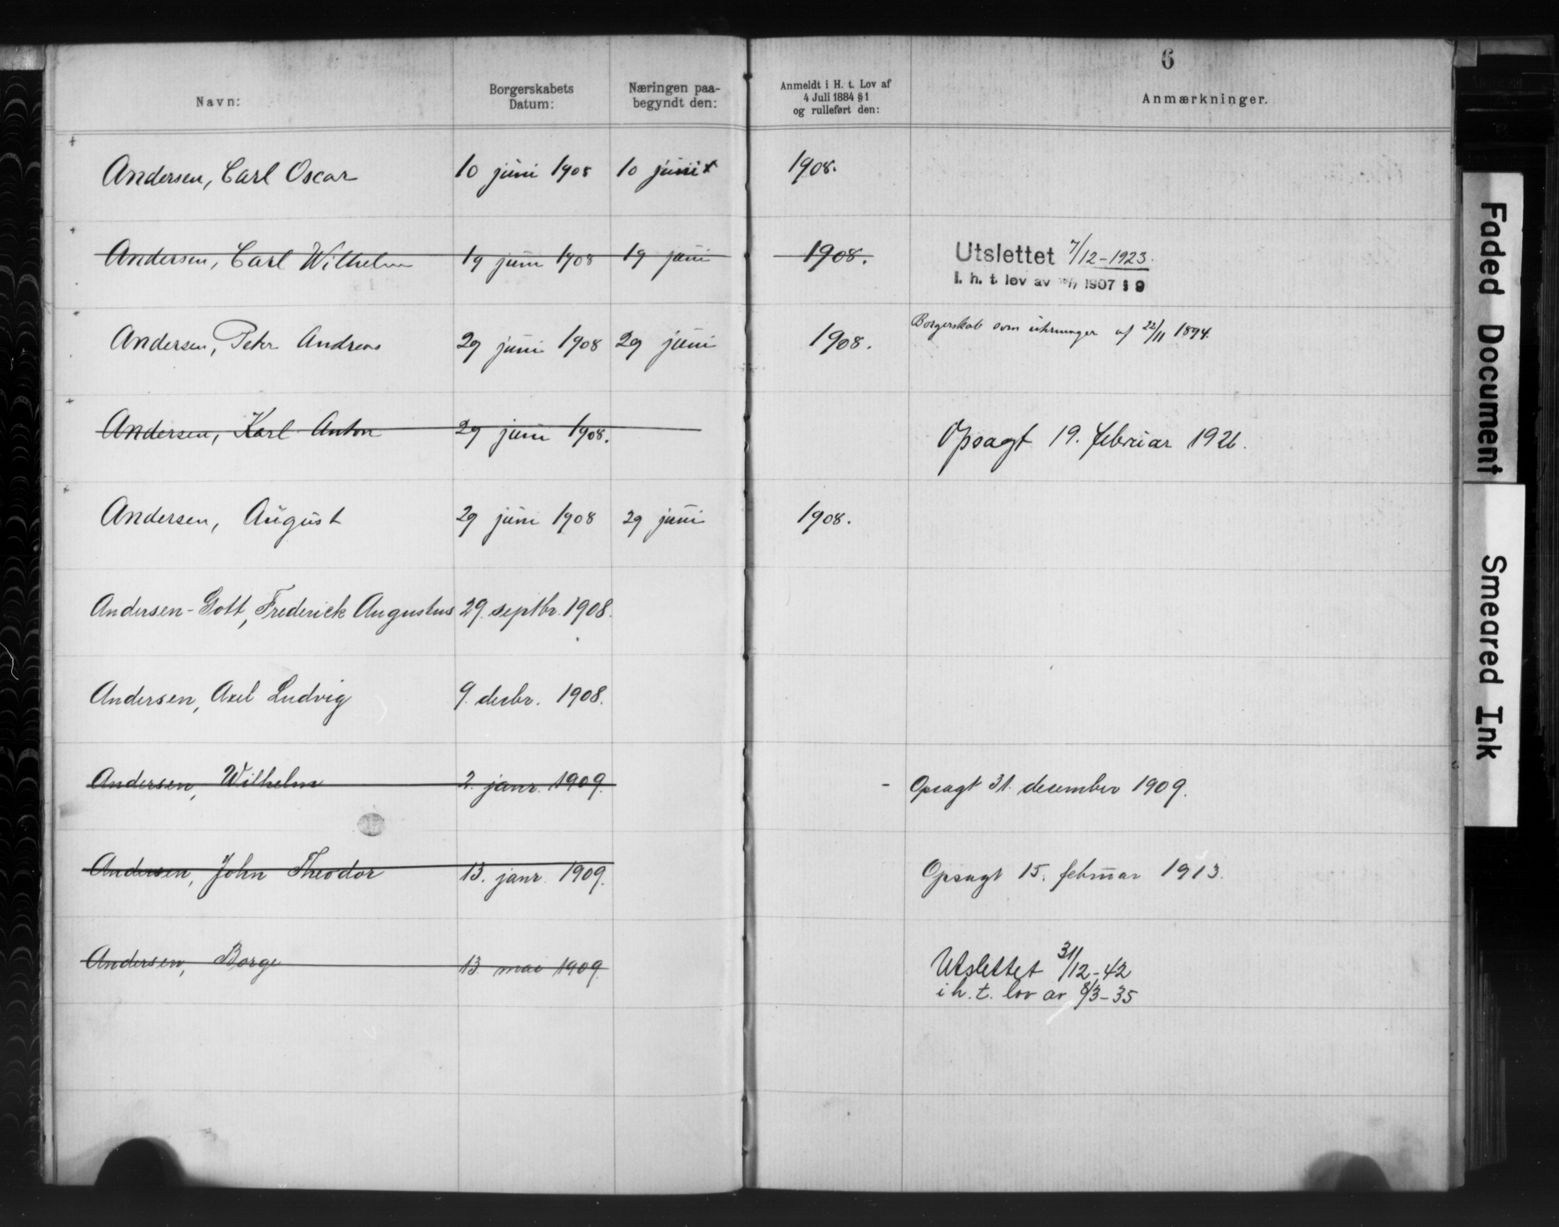 6
Navn:
Borgerskabets Datum:
Næringen paabegyndt den:
Anmeldt i H. t. Lov af 4 Juli 1884 § 1 og rulleført den:
Anmærkninger.
Andersen, Carl Oscar 10 juni 1908 10 juni 1908.
Andersen, Carl Wilhelm 19 juni 1908 19 juni 1908. Utslettet 7/12-1923.
I. h. t. lov av 1907 § 9
Andersen, Peter Andreas 29 juni 1908 29 juni 1908. Borgerskab som af 22/11 1894.
Andersen, Karl Anton 29 juni 1908. Opsagt 19. februar 1926.
Andersen, August 29 juni 1908 29 juni 1908.
Andersen-Gott, Frederick Augustus 29. septbr. 1908.
Andersen, Axel Ludvig 9. decbr. 1908.
Andersen, Wilhelm 2. janr. 1909. - Opsagt 31. desember 1909.
Andersen, John Theodor 13. janr. 1909. Opsagt 15. februar 1913.
Andersen, Borge 13 mai 1909. Utslettet 31/12-42
i h. t. lov av 8/3-35
Faded Document
Smeared Ink